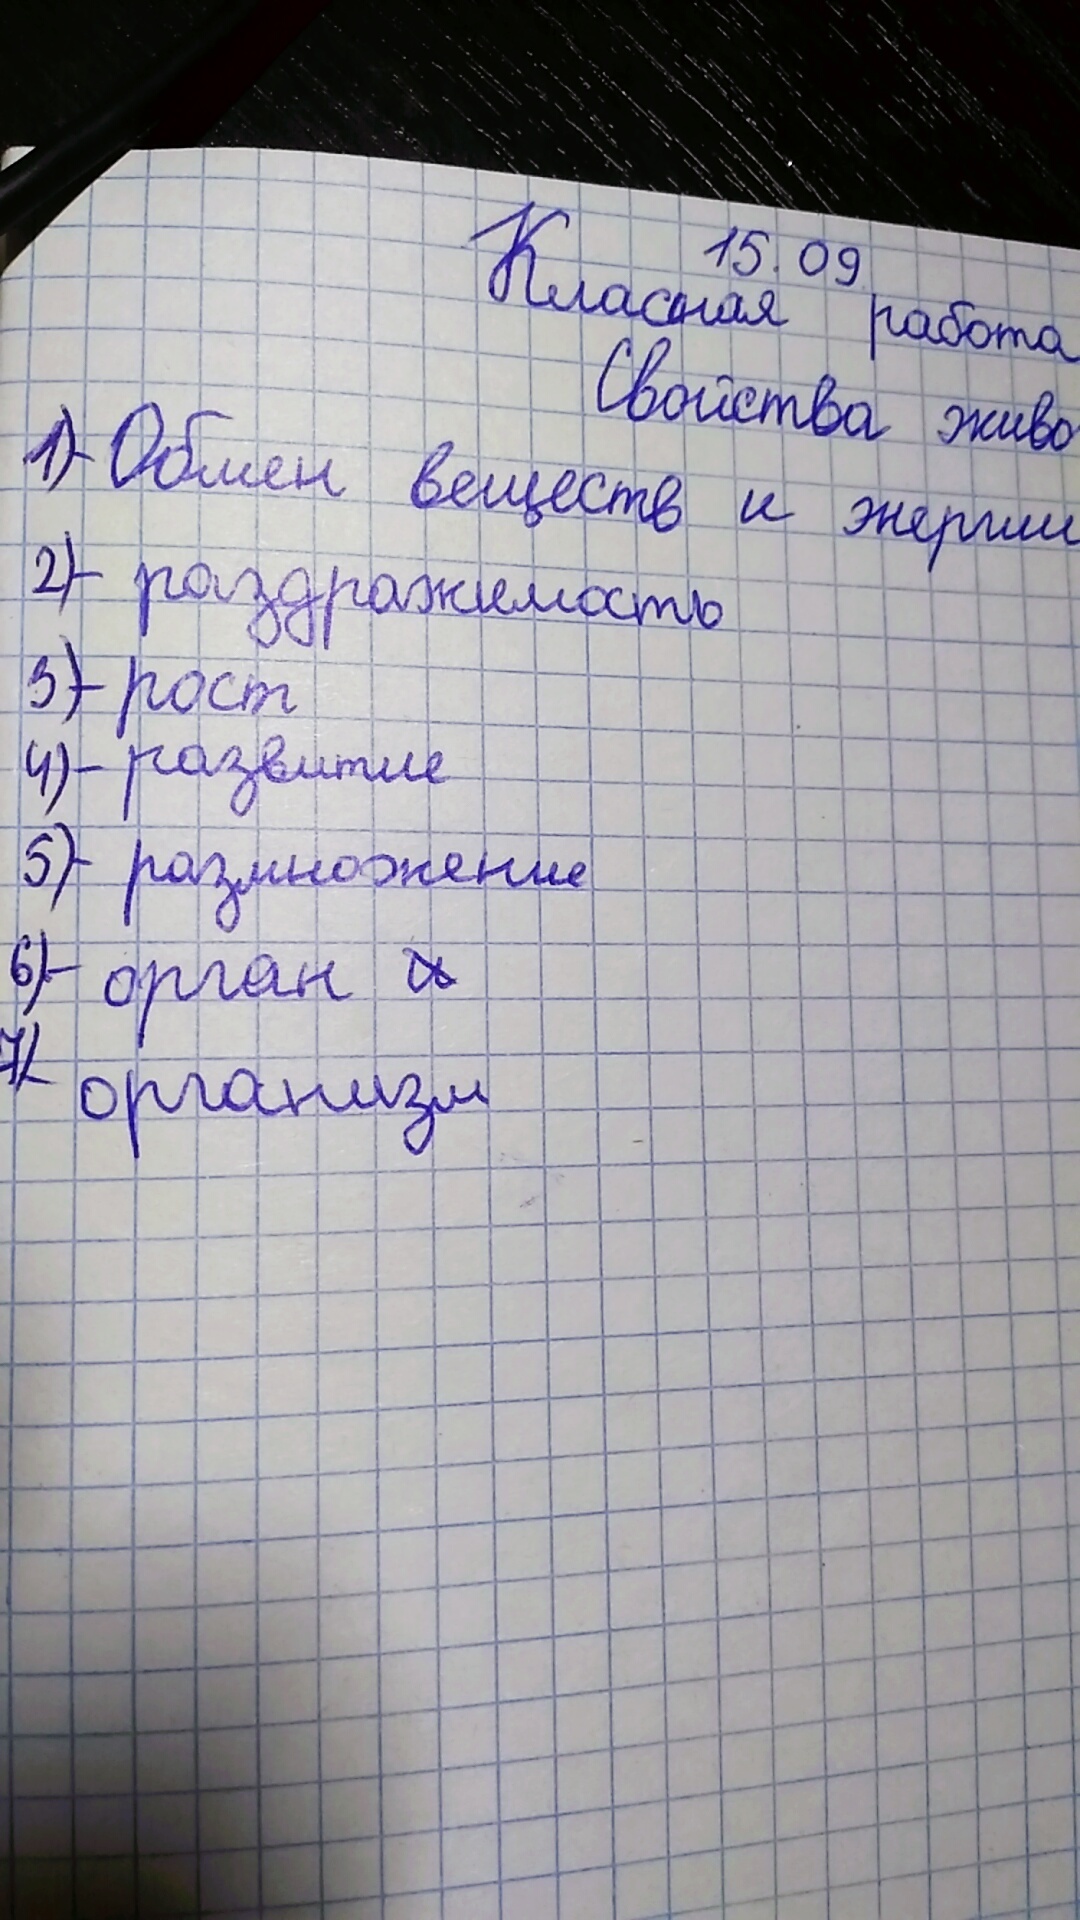 15.09
Класная работа
Свойства живо
1)- Обмен веществ и энергии
2)- раздражимость
3)- рост
4)- развитие
5)- размножение
6)- орган
7)- организм